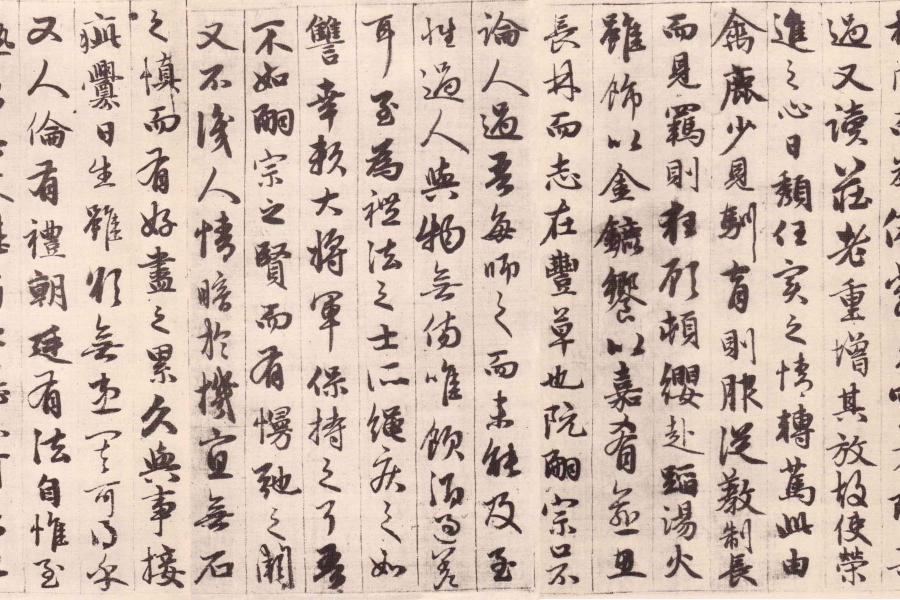 過又讀莊老重增其放故使榮
進之心日頹任實之情轉篤此由
禽鹿少見馴育則服從教制長
而見羈則狂顧頓纓赴蹈湯火
雖飾以金鑣饗以嘉肴愈思
長林而志在豐草也阮嗣宗口不
論人過吾每師之而未能及至
性過人與物無傷唯飲酒過差
耳至為禮法之士所繩疾之如
讐幸賴大將軍保持之耳吾
不如嗣宗之賢而有慢弛之闕
又不識人情暗於機宜無石
之慎而有好盡之累久與事接
疵釁日生雖欲無患其可得乎
又人倫有禮朝廷有法自惟至